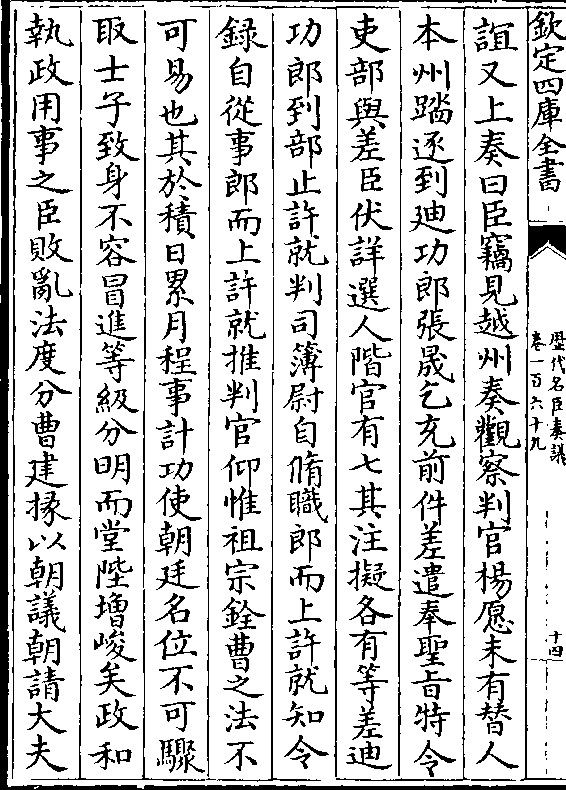 欽定四庫全書
歷代名臣奏議
卷一百六十九
十四
誼又上奏曰臣竊見越州奏觀察判官楊愿未有替人
本州踏逐到廸功郎張晟乞充前件差遣奉聖旨特令
吏部與差臣伏詳選人階官有七其注擬各有等差廸
功郎到部止許就判司簿尉自脩職郎而上許就知令
録自從事郎而上許就推判官仰惟祖宗銓曹之法不
可易也其於積日累月程事計功使朝廷名位不可驟
取士子致身不容冒進等級分明而堂陛增峻矣政和
執政用事之臣敗亂法度分曹建掾以朝議朝請大夫